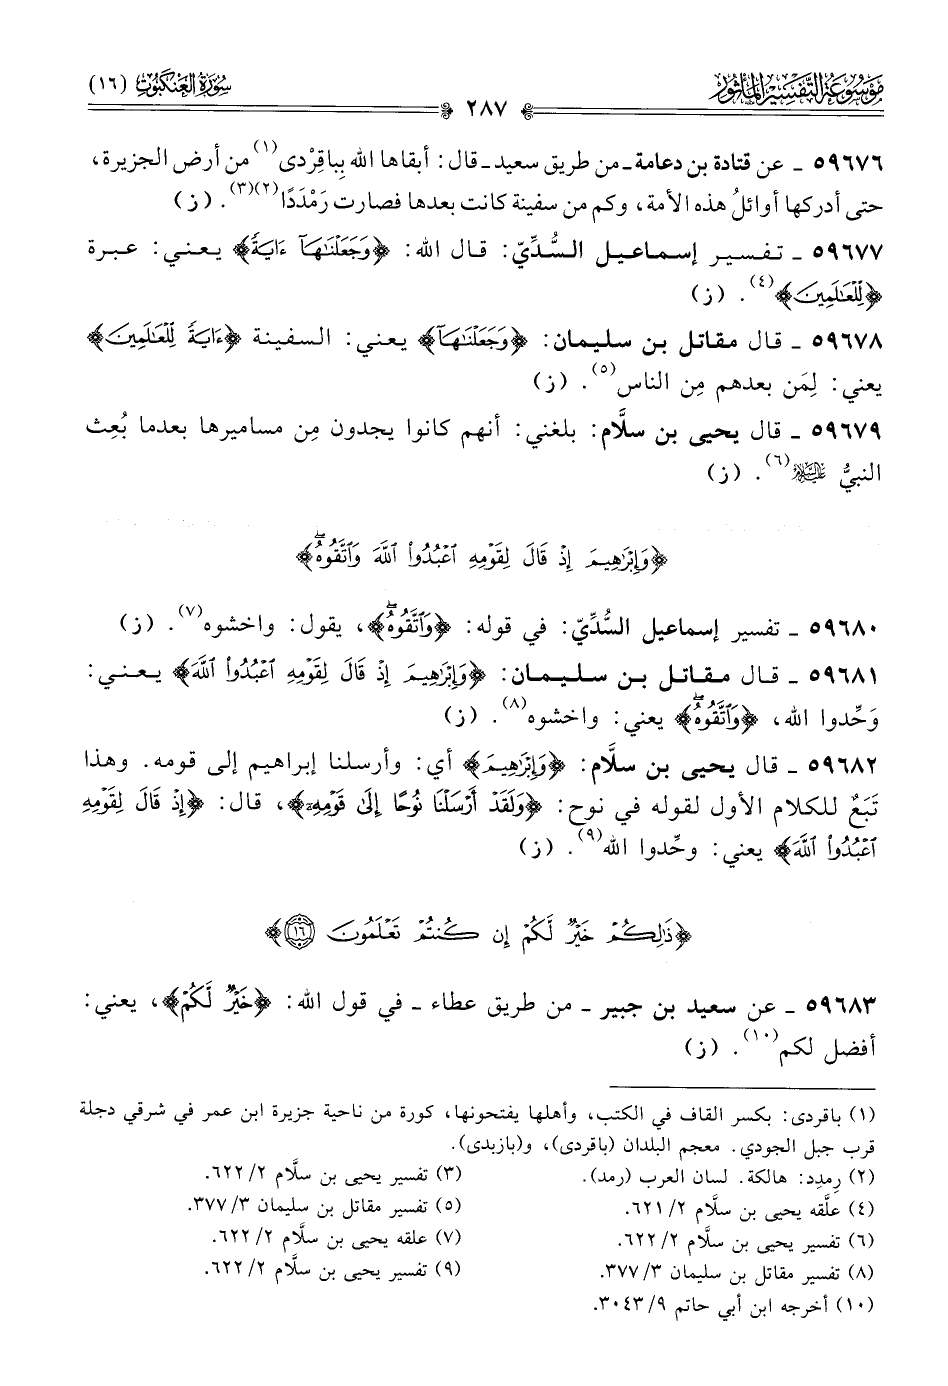 موسوعة التفسير المأثور
سورة العنكبوت (١٦)
٢٨٧
٥٩٦٧٦ ـ عن قتادة بن دعامة ـ من طريق سعيد ـ قال: أبقاها الله بِباقِرْدى(١) من أرض الجزيرة،
حتى أدركها أوائلُ هذه الأمة، وكم من سفينة كانت بعدها فصارت رَمْدَدًا(٢)(٣). (ز)
٥٩٦٧٧ ـ تفسير إسماعيل السُّدِّيّ: قال الله: ﴿وَجَعَلْنَٰهَآ ءَايَةً﴾ يعني: عبرة
﴿لِّلْعَٰلَمِينَ﴾(٤). (ز)
٥٩٦٧٨ ـ قال مقاتل بن سليمان: ﴿وَجَعَلْنَٰهَآ﴾ يعني: السفينة ﴿ءَايَةً لِّلْعَٰلَمِينَ﴾
يعني: لِمَن بعدهم مِن الناس(٥). (ز)
٥٩٦٧٩ ـ قال يحيى بن سلَّام: بلغني: أنهم كانوا يجدون مِن مساميرها بعدما بُعِث
النبيُّ عليه السلام(٦). (ز)
﴿وَإِبْرَٰهِيمَ إِذْ قَالَ لِقَوْمِهِ ٱعْبُدُوا۟ ٱللَّهَ وَٱتَّقُوهُۖ﴾
٥٩٦٨٠ ـ تفسير إسماعيل السُّدِّيّ: في قوله: ﴿وَٱتَّقُوهُۖ﴾، يقول: واخشوه(٧). (ز)
٥٩٦٨١ ـ قال مقاتل بن سليمان: ﴿وَإِبْرَٰهِيمَ إِذْ قَالَ لِقَوْمِهِ ٱعْبُدُوا۟ ٱللَّهَ﴾ يعني:
وَحِّدوا الله، ﴿وَٱتَّقُوهُۖ﴾ يعني: واخشوه(٨). (ز)
٥٩٦٨٢ ـ قال يحيى بن سلَّام: ﴿وَإِبْرَٰهِيمَ﴾ أي: وأرسلنا إبراهيم إلى قومه. وهذا
تَبَعٌ للكلام الأول لقوله في نوح: ﴿وَلَقَدْ أَرْسَلْنَا نُوحًا إِلَىٰ قَوْمِهِۦ﴾، قال: ﴿إِذْ قَالَ لِقَوْمِهِ
ٱعْبُدُوا۟ ٱللَّهَ﴾ يعني: وحِّدوا الله(٩). (ز)
﴿ذَٰلِكُمْ خَيْرٌ لَّكُمْ إِن كُنتُمْ تَعْلَمُونَ ١٦﴾
٥٩٦٨٣ ـ عن سعيد بن جبير ـ من طريق عطاء ـ في قول الله: ﴿خَيْرٌ لَّكُمْ﴾، يعني:
أفضل لكم(١٠). (ز)
(١) باقردى: بكسر القاف في الكتب، وأهلها يفتحونها، كورة من ناحية جزيرة ابن عمر في شرقي دجلة
قرب جبل الجودي. معجم البلدان (باقردى)، و(بازبدى).
(٢) رِمدِد: هالكة. لسان العرب (رمد).
(٣) تفسير يحيى بن سلَّام ٢/ ٦٢٢.
(٤) علَّقه يحيى بن سلَّام ٢/ ٦٢١.
(٥) تفسير مقاتل بن سليمان ٣/ ٣٧٧.
(٦) تفسير يحيى بن سلَّام ٢/ ٦٢٢.
(٧) علقه يحيى بن سلَّام ٢/ ٦٢٢.
(٨) تفسير مقاتل بن سليمان ٣/ ٣٧٧.
(٩) تفسير يحيى بن سلَّام ٢/ ٦٢٢.
(١٠) أخرجه ابن أبي حاتم ٩/ ٣٠٤٣.